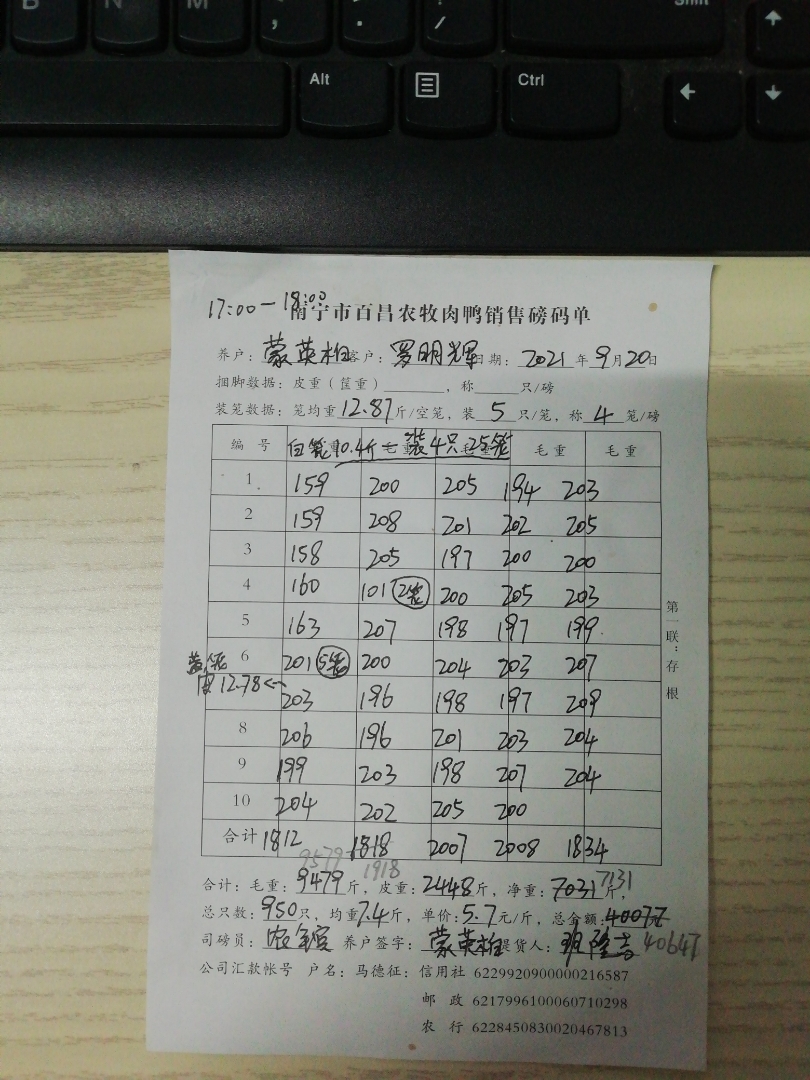 B N M < , > . ? / Shift
Alt Ctrl
17:00-18:00
南宁市百昌农牧肉鸭销售磅码单
养户:蒙英柏 客户:罗明辉 日期:2021年9月20日
捆脚数据:皮重(筐重)______,称____只/磅
装笼数据:笼均重12.87斤/空笼,装5只/笼,称4笼/磅
编号 白笼10.4斤 装4只25笼 毛重 毛重
1 159 200 205 194 203
2 159 208 201 202 205
3 158 205 197 200 200
4 160 101 2笼 200 205 203
5 163 207 198 197 199
6 201 5笼 200 204 203 207
12.78← 203 196 198 197 209
8 206 196 201 203 204
9 199 203 198 207 204
10 204 202 205 200
合计 1812 1818 2007 2008 1834
9579 1918
合计:毛重:9479斤,皮重:2448斤,净重:7031斤, 7131
总只数:950只,均重7.4斤,单价:5.7元/斤,总金额:40077
司磅员: 养户签字:蒙英柏 提货人:班隆吉 40647
公司汇款帐号 户名:马德征:信用社 6229920900000216587
邮政 6217996100060710298
农行 6228450830020467813
第一联:存根